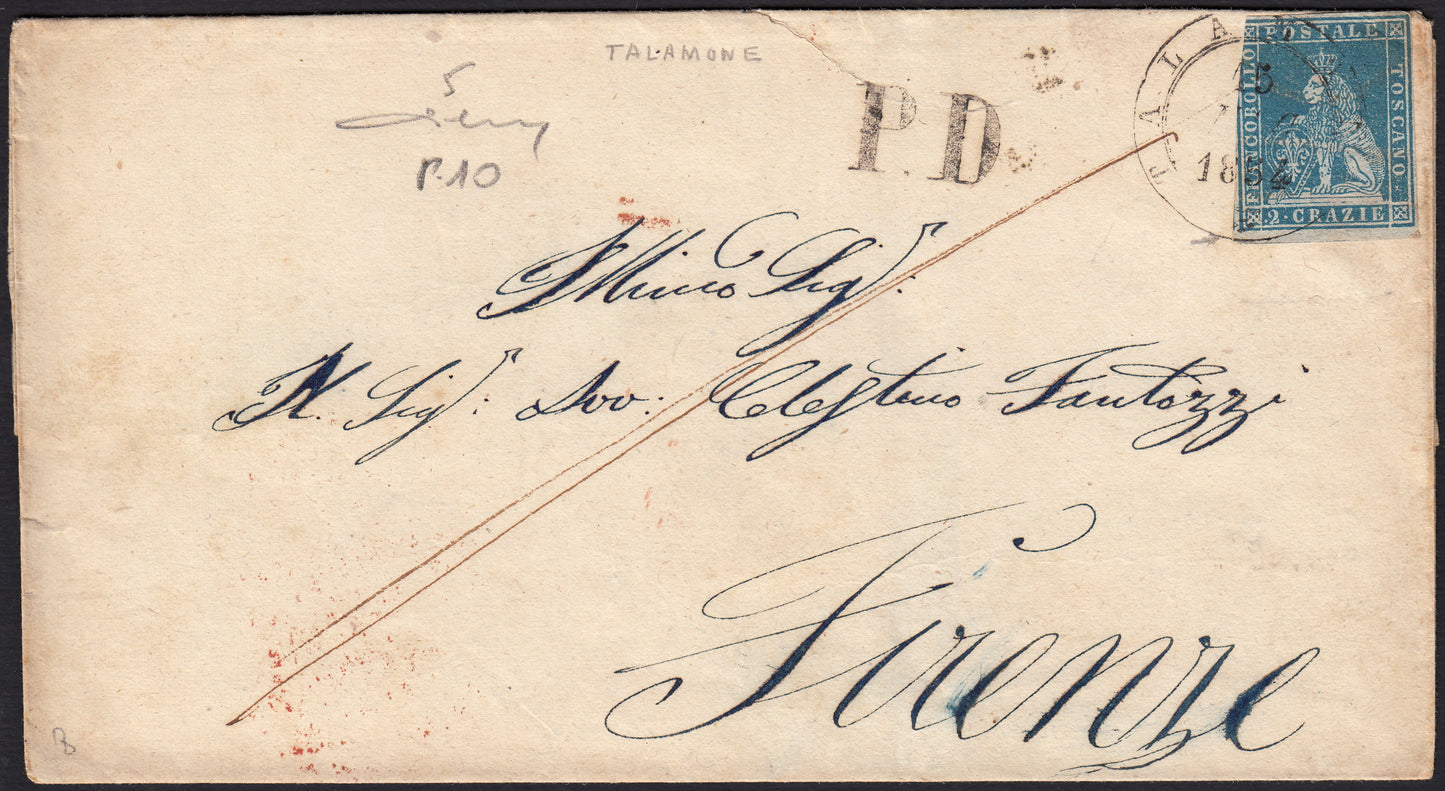 TALAMONE
5
P.10
P.D
TALAM
15
1854
FRANCOBOLLO POSTALE TOSCANO
2·CRAZIE
Illmo Sig:
Il Sig: Avv: Celestino Fantozzi
Firenze
B